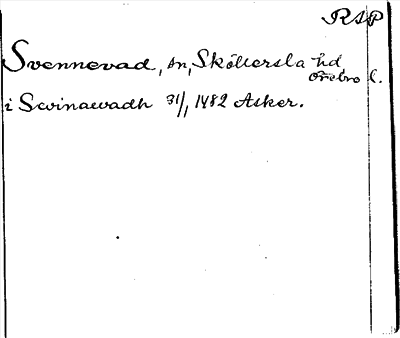 RAP
Svennevad, sn, Sköllersta hd
Örebro l.
i Swinawadh 31/1 1482 Asker.